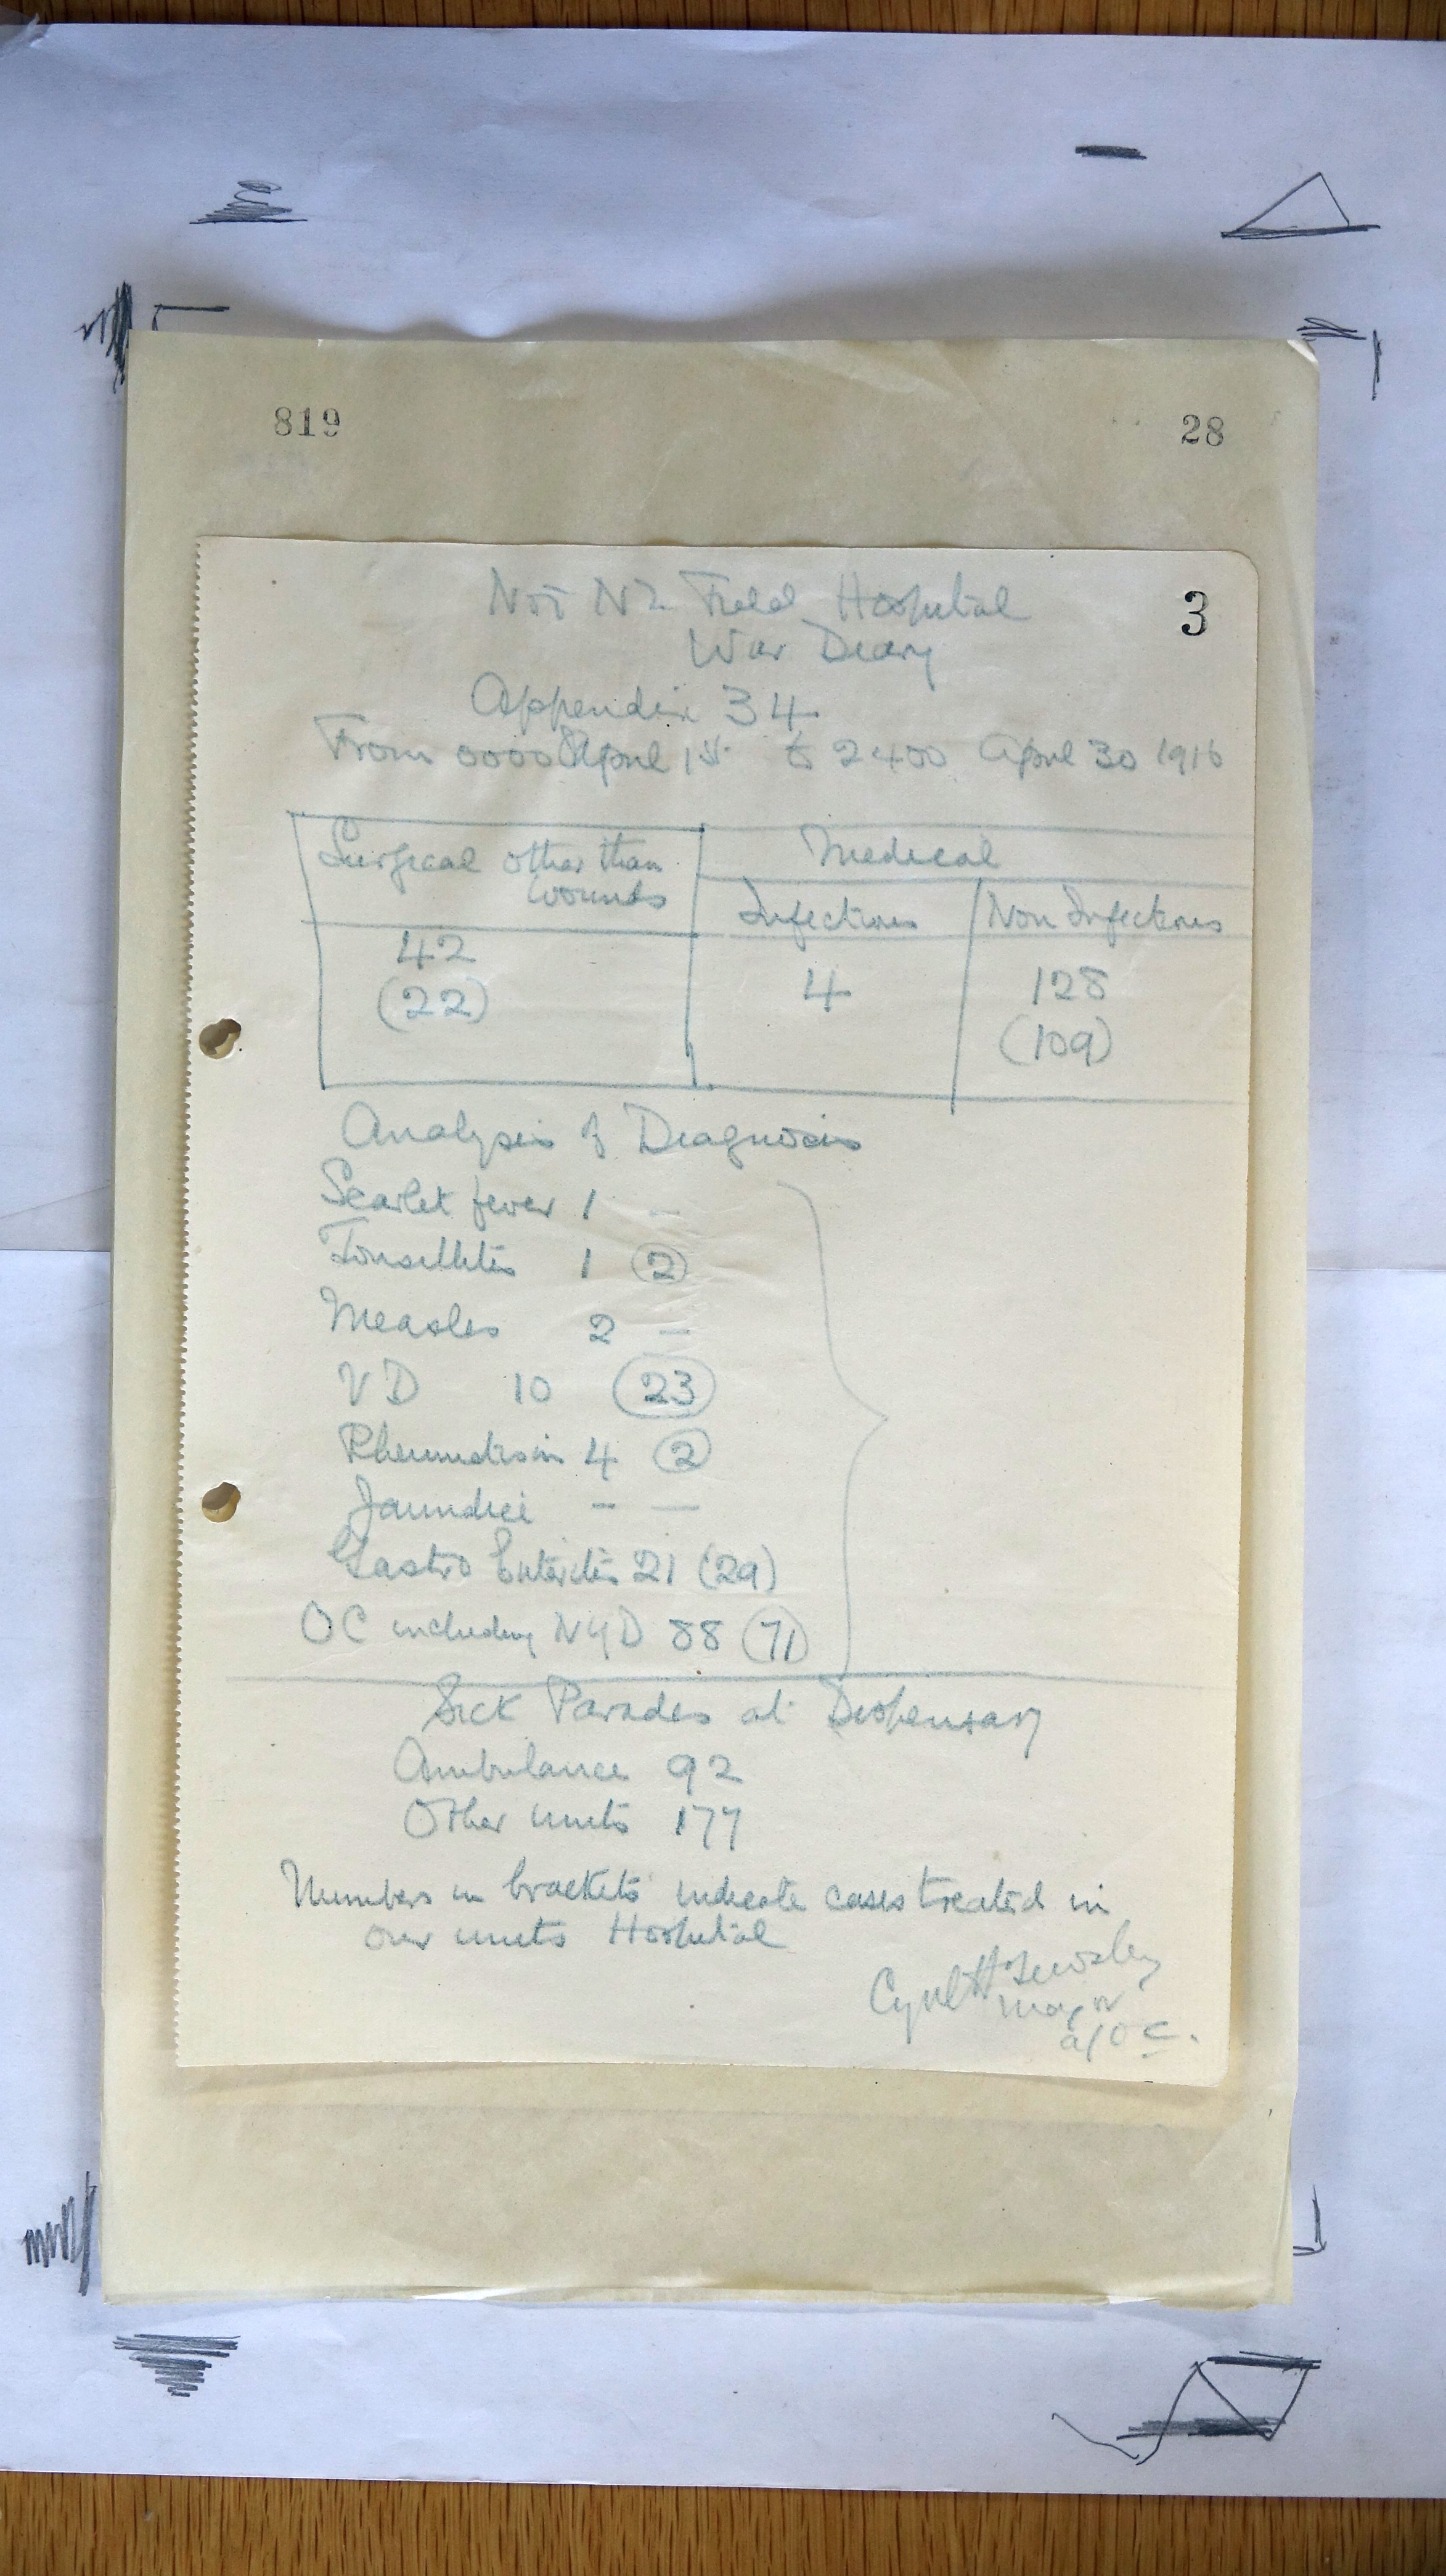 819 28
3
No 1 NZ Field Hospital
War Diary
Appendix 34
From 0000 April 1st to 2400 April 30 1916
Surgical other than Medical
wounds
Infectious Non Infectious
42 4 128
(22) (109)
Analysis of Diagnosis
Scarlet fever 1 -
Tonsillitis 1 (2)
Measles 2 -
VD 10 (23)
Rheumatism 4 (2)
Jaundice - -
Gastro Enteritis 21 (29)
OC including NYD 88 (71)
Sick Parades at Dispensary
Ambulance 92
Other units 177
Numbers in brackets indicate cases treated in
over units Hospital
Cyril H
Major
a/OC.